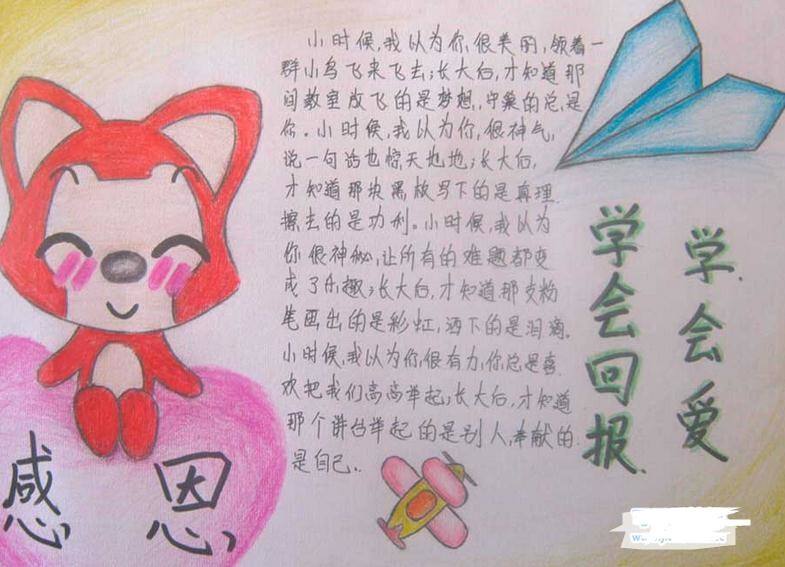 小时候,我认为你很美丽,领着一
群小鸟飞来飞去;长大后,才知道那
间教室放飞的是梦想,守巢的总是
你。小时候,我认为你很神气,
说一句话也惊天地地;长大后,
才知道那块黑板写下的是真理
擦去的是功利。小时候,我以为
你很神秘,让所有的难题都变
成了乐趣;长大后,才知道那支粉
笔画出的是彩虹,洒下的是泪滴。
小时候,我以为你很有力,你总是喜
欢把我们高高举起;长大后,才知道
那个讲台举起的是别人,奉献的
是自己.
学会爱
学会回报
感恩